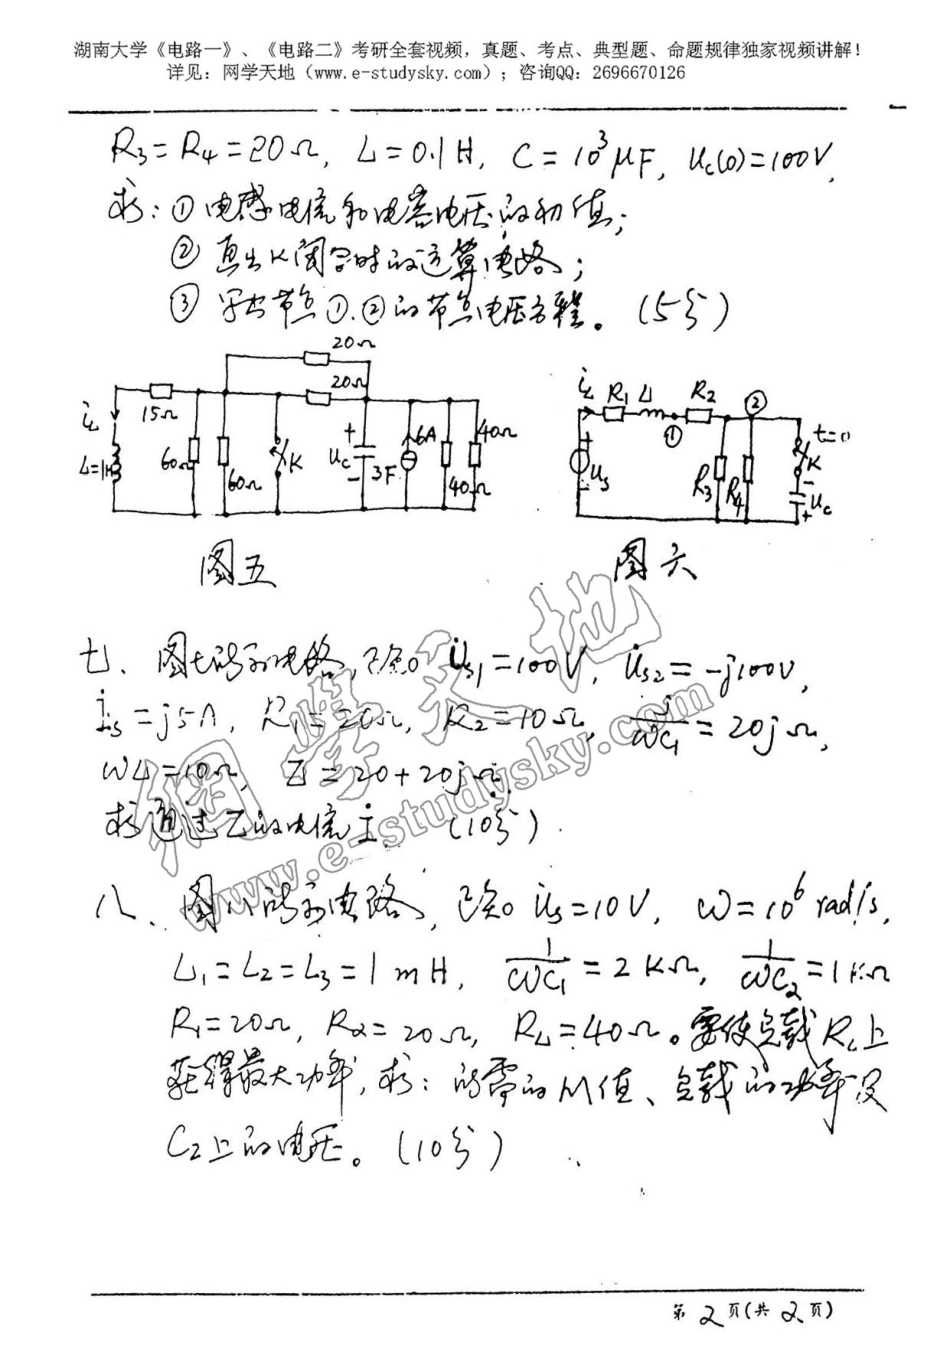 湖南大学《电路一》、《电路二》考研全套视频，真题、考点、典型题、命题规律独家视频讲解！
详见：网学天地（www.e-studysky.com）；咨询QQ：2696670126
R₃=R₄=20Ω, L=0.1H, C=10³μF, Uc(0)=100V.
求：①电感电流和电容电压的初值；
②画出K闭合时的运算电路；
③写出节点①、②的节点电压方程。（5分）
20Ω
20Ω
15Ω
iL
L=1H
60Ω
60Ω
K
+
Uc
-
3F
6A
40Ω
40Ω
iL R₁ L R₂ ②
①
+
Us
-
R₃
R₄
t=0
K
-
Uc
+
图五 图六
七、图七所示电路，已知 U̇s₁=100V, U̇s₂=-j100V,
İs=j5A, R₁=20Ω, R₂=10Ω, 1/ωC₁=20jΩ,
ωL=10Ω, Z=20+20jΩ,
求通过Z的电流İ. （10分）.
八、图八所示电路，已知 U̇s=10V, ω=10⁶ rad/s,
L₁=L₂=L₃=1mH, 1/ωC₁=2KΩ, 1/ωC₂=1KΩ
R₁=20Ω, R₂=20Ω, RL=40Ω。要使负载RL上
获得最大功率，求：所需的M值、负载的功率及
C₂上的电压。（10分）
網學天地
www.e-studysky.com
第2页(共2页)